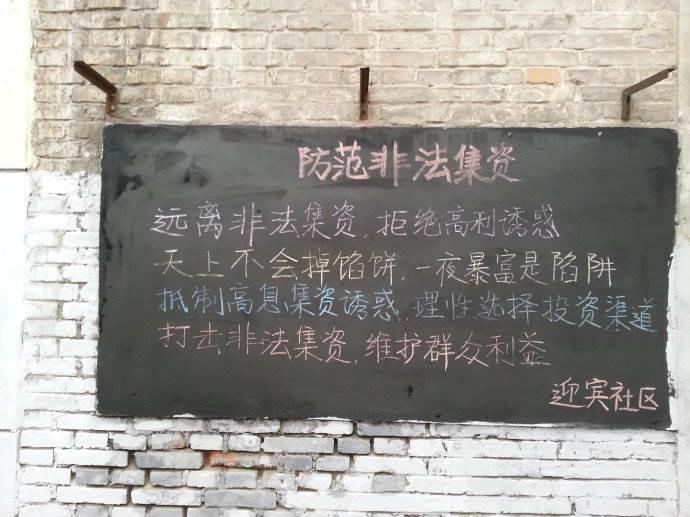 防范非法集资
远离非法集资,拒绝高利诱惑
天上不会掉馅饼,一夜暴富是陷阱
抵制高息集资诱惑,理性选择投资渠道
打击非法集资,维护群众利益
迎宾社区